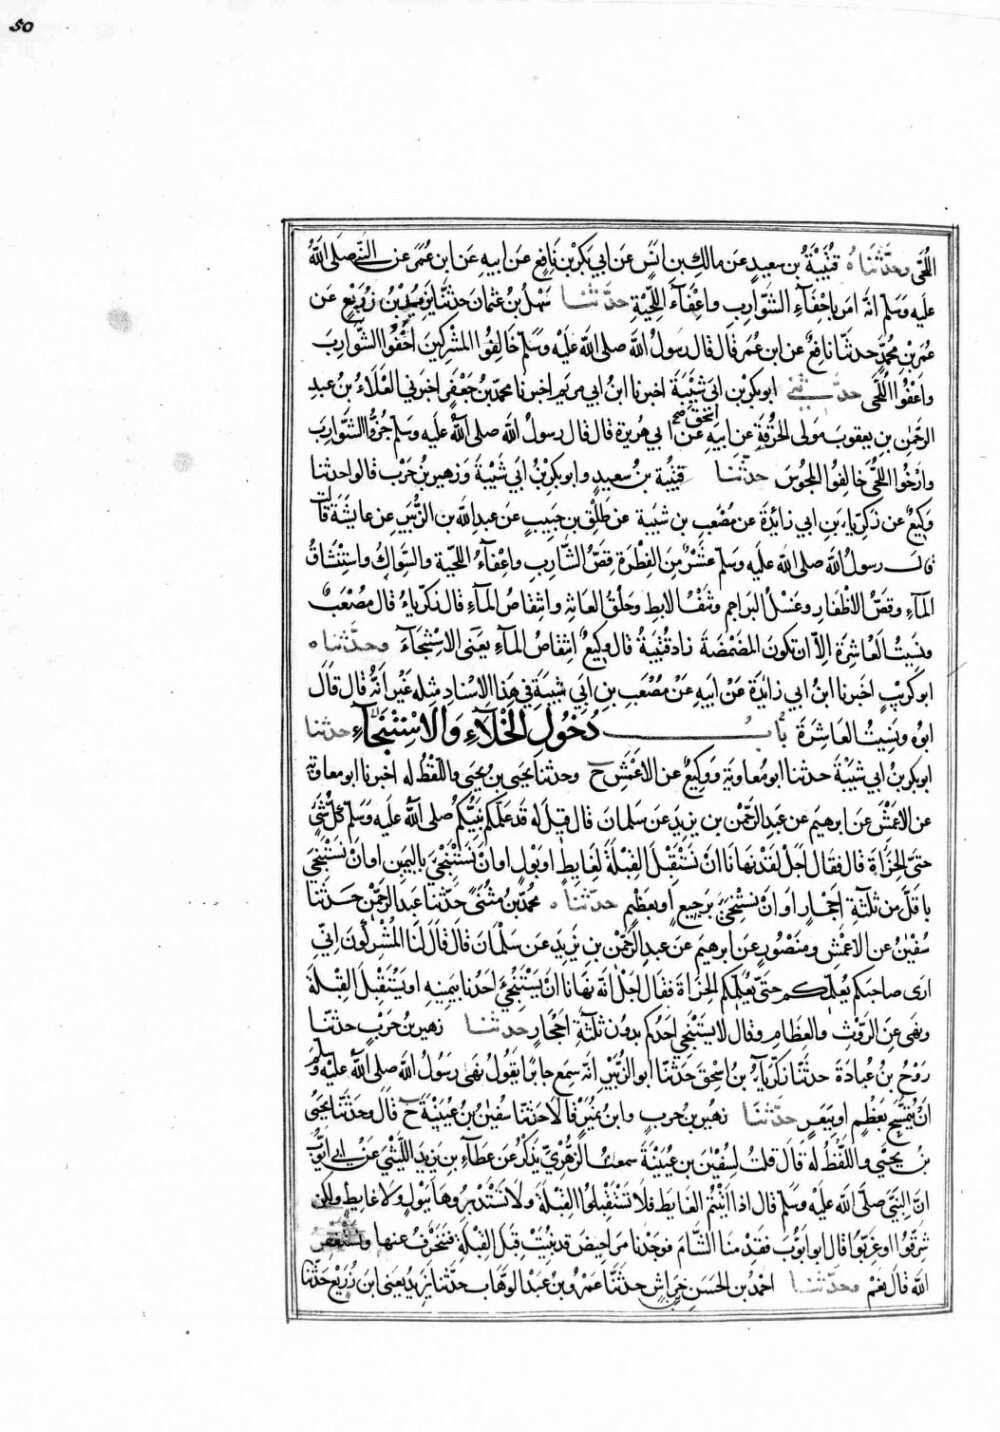 50
اللُّحَى وحَدَّثَنَاه قُتَيْبَةُ بن سعيدٍ عَن مالكِ بن انَسٍ عَن ابي بَكرِ بن نَافِعٍ عَن ابيهِ عَنِ ابن عُمَرَ عن النَّبى صَلى اللهُ
عليه وَسَلم انهُ امَرَ باِحْفَآءِ الشَّوَارِبِ واعِْفَآءَ اللِّحْيَةِ حدَّثنا سَهْلُ بنُ عثمانَ حَدثَنَا يَزيدُ بْنُ زُرَيْعٍ عَن
عُمَرَ بنِ محُمَّدٍ حدثنَا نافِعٌ عن ابن عُمَرَ قَالَ قَالَ رَسولُ اللهِ صلى اللهُ عَلَيْهِ وسَلمَ خَالِفُوا المُشْركِينَ احْفُوا الشَّوارِبَ
واعْفُوا اللُّحَى حدثني ابوبكرِ بْنِ ابي شَيْبَةَ اخبرنا ابنُ ابي مريَم اخبرنا محمّد بْنُ جَعْفَرٍ اخبَرني العَلَاءُ بْنُ عبدِ
الرّحمٰنِ بنِ يعقوبَ مَولى الحُرَقَةِ عن ابيهِ عَن ابي هُريرةَ قال قال رسولُ الله صلى الله عليه وسَلم جُزُّوا الشَّوَارِبَ
وارْخُوا اللُّحَى خَالِفُوا المجُوسَ حدَّثنا قتيبةُ بن سعيدٍ وابو بكرِ بْنُ ابي شَيْبَةَ وَزهير بْنُ حَرْبٍ قالوا حدثنا
وَكيعٌ عَن زكرِيّاءَ بنِ ابي زائِدَةَ عن مُصْعَبِ بن شيبَةَ عن طَلْقِ بنِ حَبِيبٍ عن عبدِ الله بن الزُّبَيرِ عن عايشَةَ قالت
قالَ رسولُ الله صلى الله عليه وسلم عَشْرٌ مِنَ الفِطْرَةِ قصُّ الشّارِبِ واعفَآءُ اللّحية والسِّواكُ واستِنْشَاقُ
المَآءِ وقصُّ الاظفارِ وغَسْلُ البَرَاجِمِ ونَتْفُ الابِطِ وحَلْقُ العَانةِ وانتِقاصُ المآءِ قالَ زَكرّياءُ قال مُصْعَبٌ
ونَسِيتُ العَاشِرَةَ الاّ ان تكونَ المَضْمَضَةَ زاد قُتَيْبَةُ قال وَكيعٌ انتِقَاصُ المآءِ يَعنَى الاسْتِنْجَآءَ وحدَّثناه
ابو كريبٍ اخبَرنا ابنُ ابي زائِدَةَ عَنْ ابيهِ عَنْ مُصْعَبِ بنِ ابي شَيبَةَ في هَذا الاسْنادِ مِثلِه غَيْرَ انّهُ قال قال
ابوه ونَسِيتُ العَاشِرَةَ بابُ دُخولِ الخَلَآءِ وَالاسْتِنْجَآءِ حدثنا
ابوبكر بنُ ابي شَيْبَةَ حدثنا ابو مُعاويَةَ ووَكيعٌ عن الاعْمَشِ ح وحدثنا يَحيَى بن يحيى واللّفْظُ له اخبرنا ابو معاوِيَة
عن الاعْمَشِ عن ابرهيمَ عن عبدِ الرّحمٰنِ بنِ يزيدَ عن سَلمانَ قال قِيلَ لهُ قد عَلّمَكُم نَبِيُّكُم صلى الله عليه وسلم كُلَّ شَيْءٍ
حتّى الخِرَآءَةَ قالَ فقال اَجَلْ لقَدْ نَهَانَا ان نَسْتَقْبِلَ القِبْلَةَ لِغَايِطٍ اوبَوْلٍ او انْ نَسْتَنْجِيَ باليَمِينِ او انْ نَسْتَنْجِيَ
باقَلّ من ثلَثَةِ اَحْجارٍ اوَ انْ نَسْتَنْجِيَ بِرَجِيعٍ او بعَظْمٍ حدّثناه محمّد بن مُثنى حَدّثنا عَبدَ الرّحمٰن حَدثنا
سُفيٰنُ عن الاعمَشِ ومنصُورٍ عن ابرهيمَ عن عبدِ الرّحمٰنِ بنِ يزيدَ عن سَلمانَ قالَ قالَ لنَا المُشركُونَ اِنّي
ارَى صاحِبَكم يُعَلّمُكُم حَتّى يُعَلّمَكم الخِرَاةَ فقال اَجَلْ انّهُ نَهَانا انْ يَسْتَنْجِيَ احَدُنا بيَمِينِهِ اويَسْتَقْبِلَ القِبْلَةَ
ونهَى عَنِ الرَّوْثِ والعِظَامِ وقَال لا يَسْتَنْجِي احَدُكُم بدُونِ ثَلثَةِ احْجارٍ حدثنا زهير بن حَربٍ حدثنا
رَوْحُ بنُ عُبادَةَ حدثنا زكَرِيّآءُ بنُ اسْحٰقَ حَدّثنا ابو الزبَيْرِ انّهُ سمع جابرًا يقُولُ نهَى رَسُولُ الله صلى الله عليه وسلم
انْ يُتَمَسَّحَ بعَظْمٍ او ببَعَرٍ حدّثنا زهير بن حربٍ وابن نُمَيرٍ قالا حَدثنا سُفيٰنُ بنُ عُيَيْنَةَ ح قالَ وحدّثنا يَحيى
بنُ يَحيَى واللّفْظُ لهُ قالَ قلتُ لسُفيٰنَ بن عُيَيْنَةَ سمعتُ الزُّهْرِيَّ يَذكُرُ عَن عَطَآءِ بنِ يزيدَ اللّيْثِيّ عَنْ ابي ايّوبَ
انّ النَّبِيَّ صَلّى الله عَلَيْهِ وسلّم قالَ اذا اَتَيْتُمُ الغَايِطَ فلا تَسْتَقْبِلُوا القِبْلَةَ ولا تَسْتَدْبِرُوهَا ببَوْلٍ ولا غايِطٍ ولكِن
شَرِّقُوا اوغَرِّبُوا قال ابو ايّوبَ فقَدِمنَا الشّامَ فوَجَدنا مَرَاحِيضَ قد بُنِيَتْ قِبَلَ القِبْلةِ فنَنْحَرِفُ عنها ونَسْتَغفِرُ
الله قالَ نعَم وحدّثنا احمدُ بن الحَسَنِ خِراشٍ حدثنَا عَمرُو بن عَبدِ الوهّابِ حدّثنا يَزيدُ يعني ابنَ زُرَيْعٍ حَدّثنا